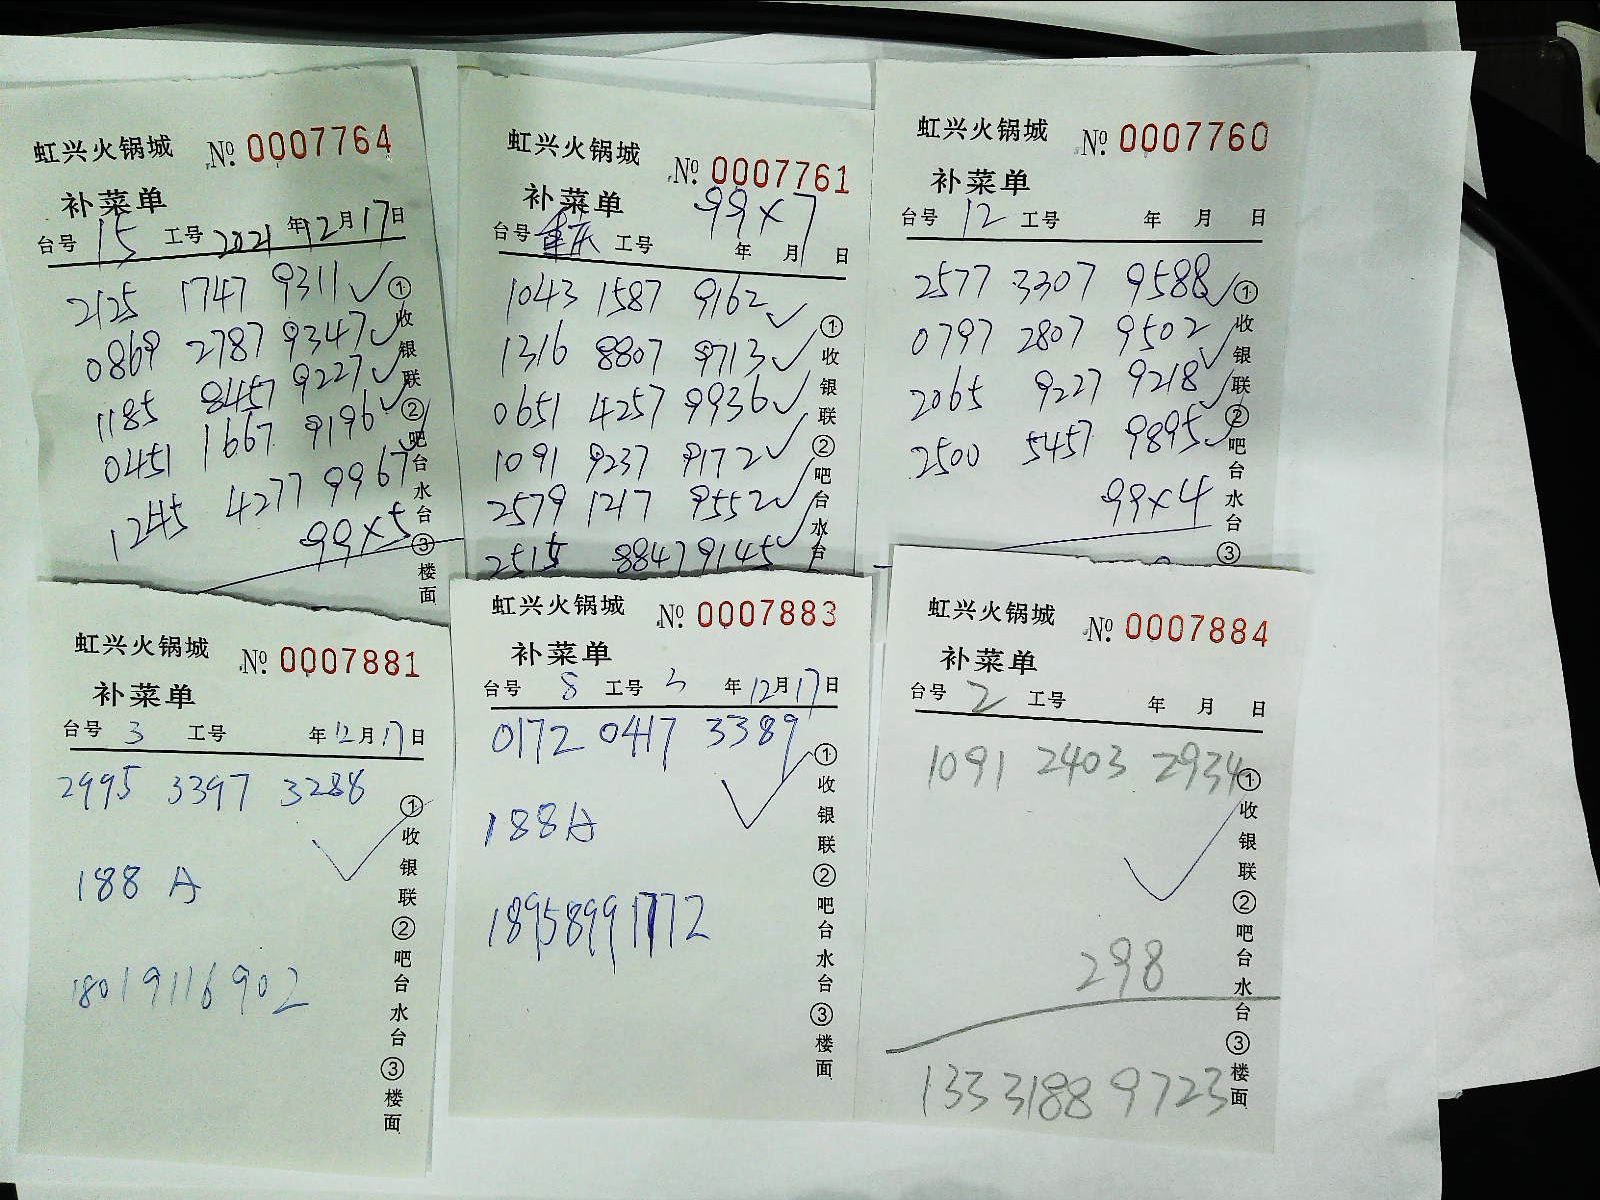 虹兴火锅城 №. 0007764
补菜单
台号 15 工号 2021 年 12 月 17 日
2125 1747 9311 ✓
0869 2787 9347 ✓
1185 8457 9227 ✓
0451 1667 9196 ✓
1245 4277 9967
99×5
①收银联②吧台水台③楼面
虹兴火锅城 №. 0007761
补菜单 99×7
台号 重庆 工号 年 月 日
1043 1587 9162 ✓
1316 8807 9713 ✓
0651 4257 9936 ✓
1091 9237 9172 ✓
2579 1217 9552 ✓
2515 8847 9145 ✓
①收银联②吧台水台
虹兴火锅城 №. 0007760
补菜单
台号 12 工号 年 月 日
2577 3307 9588 ✓
0797 2807 9502 ✓
2065 9227 9218 ✓
2500 5457 9895 ✓
99×4
①收银联②吧台水台③
虹兴火锅城 №. 0007881
补菜单
台号 3 工号 年 12 月 17 日
2995 3397 3288
✓
188 A
18019116902
①收银联②吧台水台③楼面
虹兴火锅城 №. 0007883
补菜单
台号 8 工号 3 年 12 月 17 日
0172 0417 3389
✓
188A
18958991772
①收银联②吧台水台③楼面
虹兴火锅城 №. 0007884
补菜单
台号 2 工号 年 月 日
1091 2403 2934
✓
298
13331889723
①收银联②吧台水台③楼面